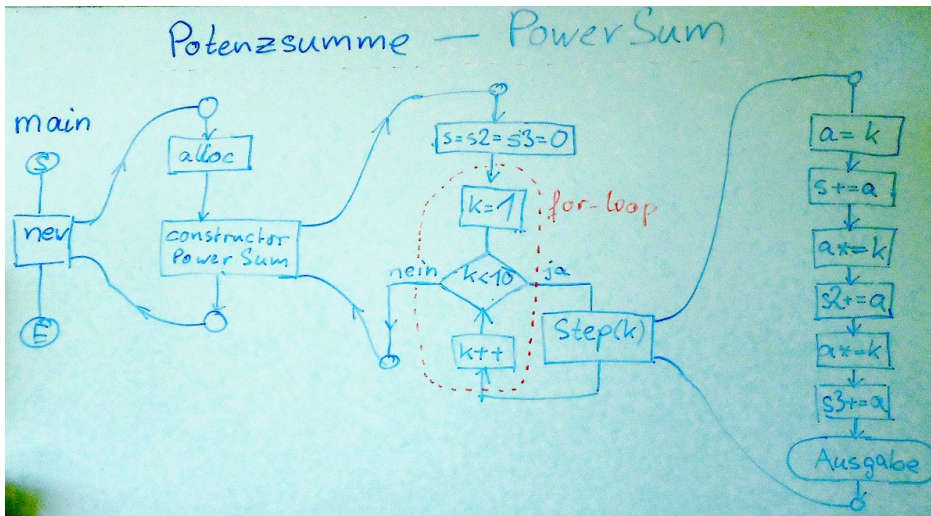 Potenzsumme — PowerSum
main
S
new
E
alloc
constructor
Power Sum
s=s2=s3=0
for-loop
k=1
k<10
nein
ja
k++
Step(k)
a=k
s+=a
a*=k
s2+=a
a*=k
s3+=a
Ausgabe